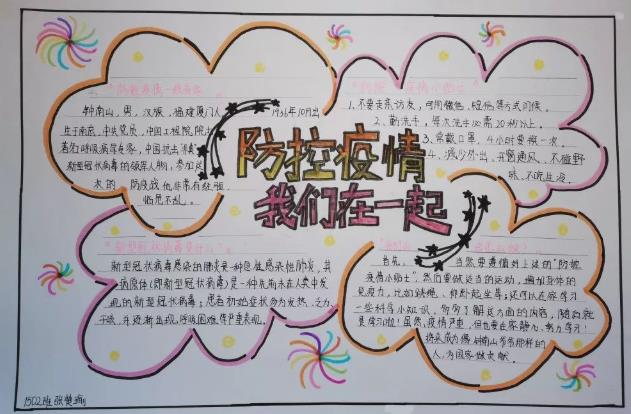 钟南山,男,汉族,福建厦门人,1936年10月出
生于南京,中共党员,中国工程院院士
著名呼吸病学专家,中国抗击非典
新型冠状病毒的领军人物,
他非常有经验,
临危不乱。
防控疫情
我们在一起
1、不要走亲访友,可用微信,短信等方式问候。
2、勤洗手,每次洗手必需20秒以上。
3、常戴口罩,4小时要换一次。
4、减少外出,开窗通风,不碰野
味,不吃生冷。
新型冠状病毒是什么?
新型冠状病毒感染的肺炎是一种急性感染性肺炎,其
病原体(即新型冠状病毒)是一种先前未在人类中发
现的新型冠状病毒,患者初始症状多为发热、乏力
干咳,并逐渐出现呼吸困难等严重表现。
首先,当然要遵循到上述的“防控
疫情小贴士”,然后要做适当的运动,增加身体的
免疫力,比如跳绳、仰卧起坐等,还可以在家学习
一些科学小知识,
虽然,疫情严重,但也要在家静心,努力学习!
将来成为像钟南山爷爷那样的
人,为国家做贡献。
1502班